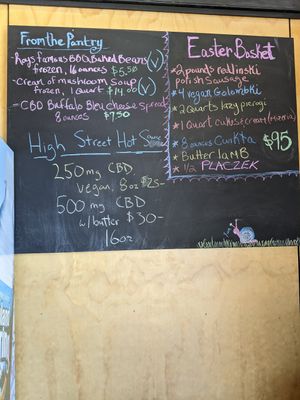 From the Pantry
- Rays famous BBQ Baked Beans (V)
frozen, 16 ounces $5.50
- Cream of mushroom soup (V)
frozen, 1 Quart $14.00
- CBD Buffalo Bleu Cheese Spread
8 ounces $7.50
High Street Hot Sauce
250 mg CBD
vegan. 8oz $25-
500 mg CBD
w/butter $30-
16oz
Easter Basket
* 2 pounds redlinski
polish Sausage
* 4 vegan Golombki
* 2 Quarts lazy pierogi
* 1 Quart cukes & cream
* 8 ounces Cwikta
$95
* Butter lamb
* 1/2 PLACZEK